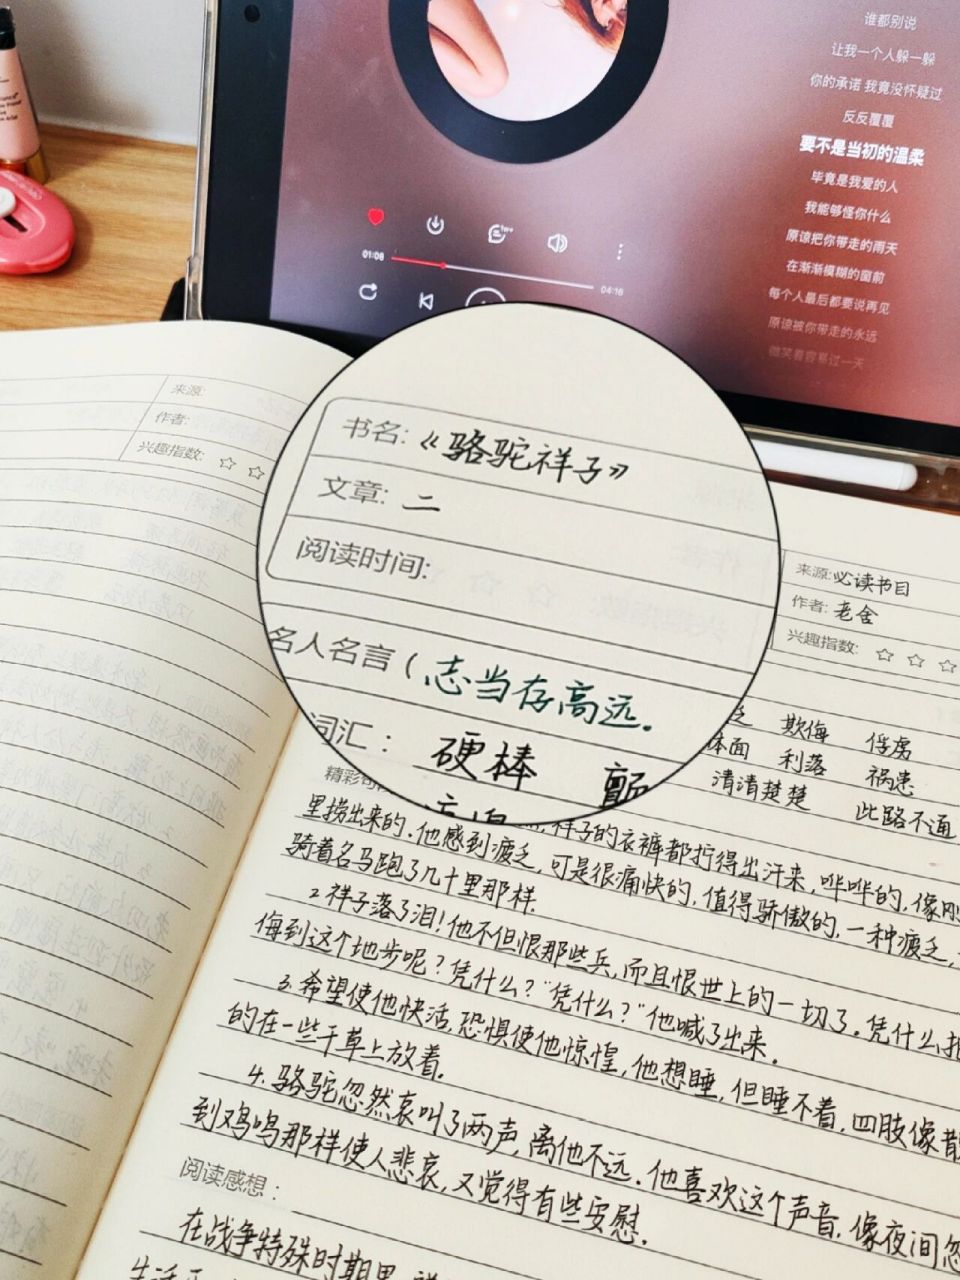 谁都别说
让我一个人躲一躲
你的承诺 我竟没怀疑过
反反覆覆
要不是当初的温柔
毕竟是我爱的人
我能够怪你什么
原谅把你带走的雨天
在渐渐模糊的窗前
每个人最后都要说再见
原谅被你带走的永远
微笑着容易过一天
01:08
04:16
来源:
作者:
兴趣指数: ☆ ☆
书名:《骆驼祥子》
文章: 二
阅读时间:
来源:必读书目
作者:老舍
兴趣指数: ☆ ☆ ☆
名人名言(志当存高远.
词汇: 硬棒 欺侮 俘虏
体面 利落 祸患
清清楚楚 此路不通
精彩句
祥子的衣裤都拧得出汗来,哗哗的,像刚
里捞出来的.他感到疲乏,可是很痛快的,值得骄傲的,一种疲乏,
骑着名马跑了几十里那样.
2.祥子落了泪!他不但恨那些兵,而且恨世上的一切了.凭什么把
侮到这个地步呢?凭什么?"凭什么?"他喊了出来.
3.希望使他快活,恐惧使他惊惶,他想睡,但睡不着,四肢像散
的在一些干草上放着.
4.骆驼忽然哀叫了两声,离他不远.他喜欢这个声音,像夜间忽
到鸡鸣那样使人悲哀,又觉得有些安慰.
阅读感想:
在战争特殊时期里
生活